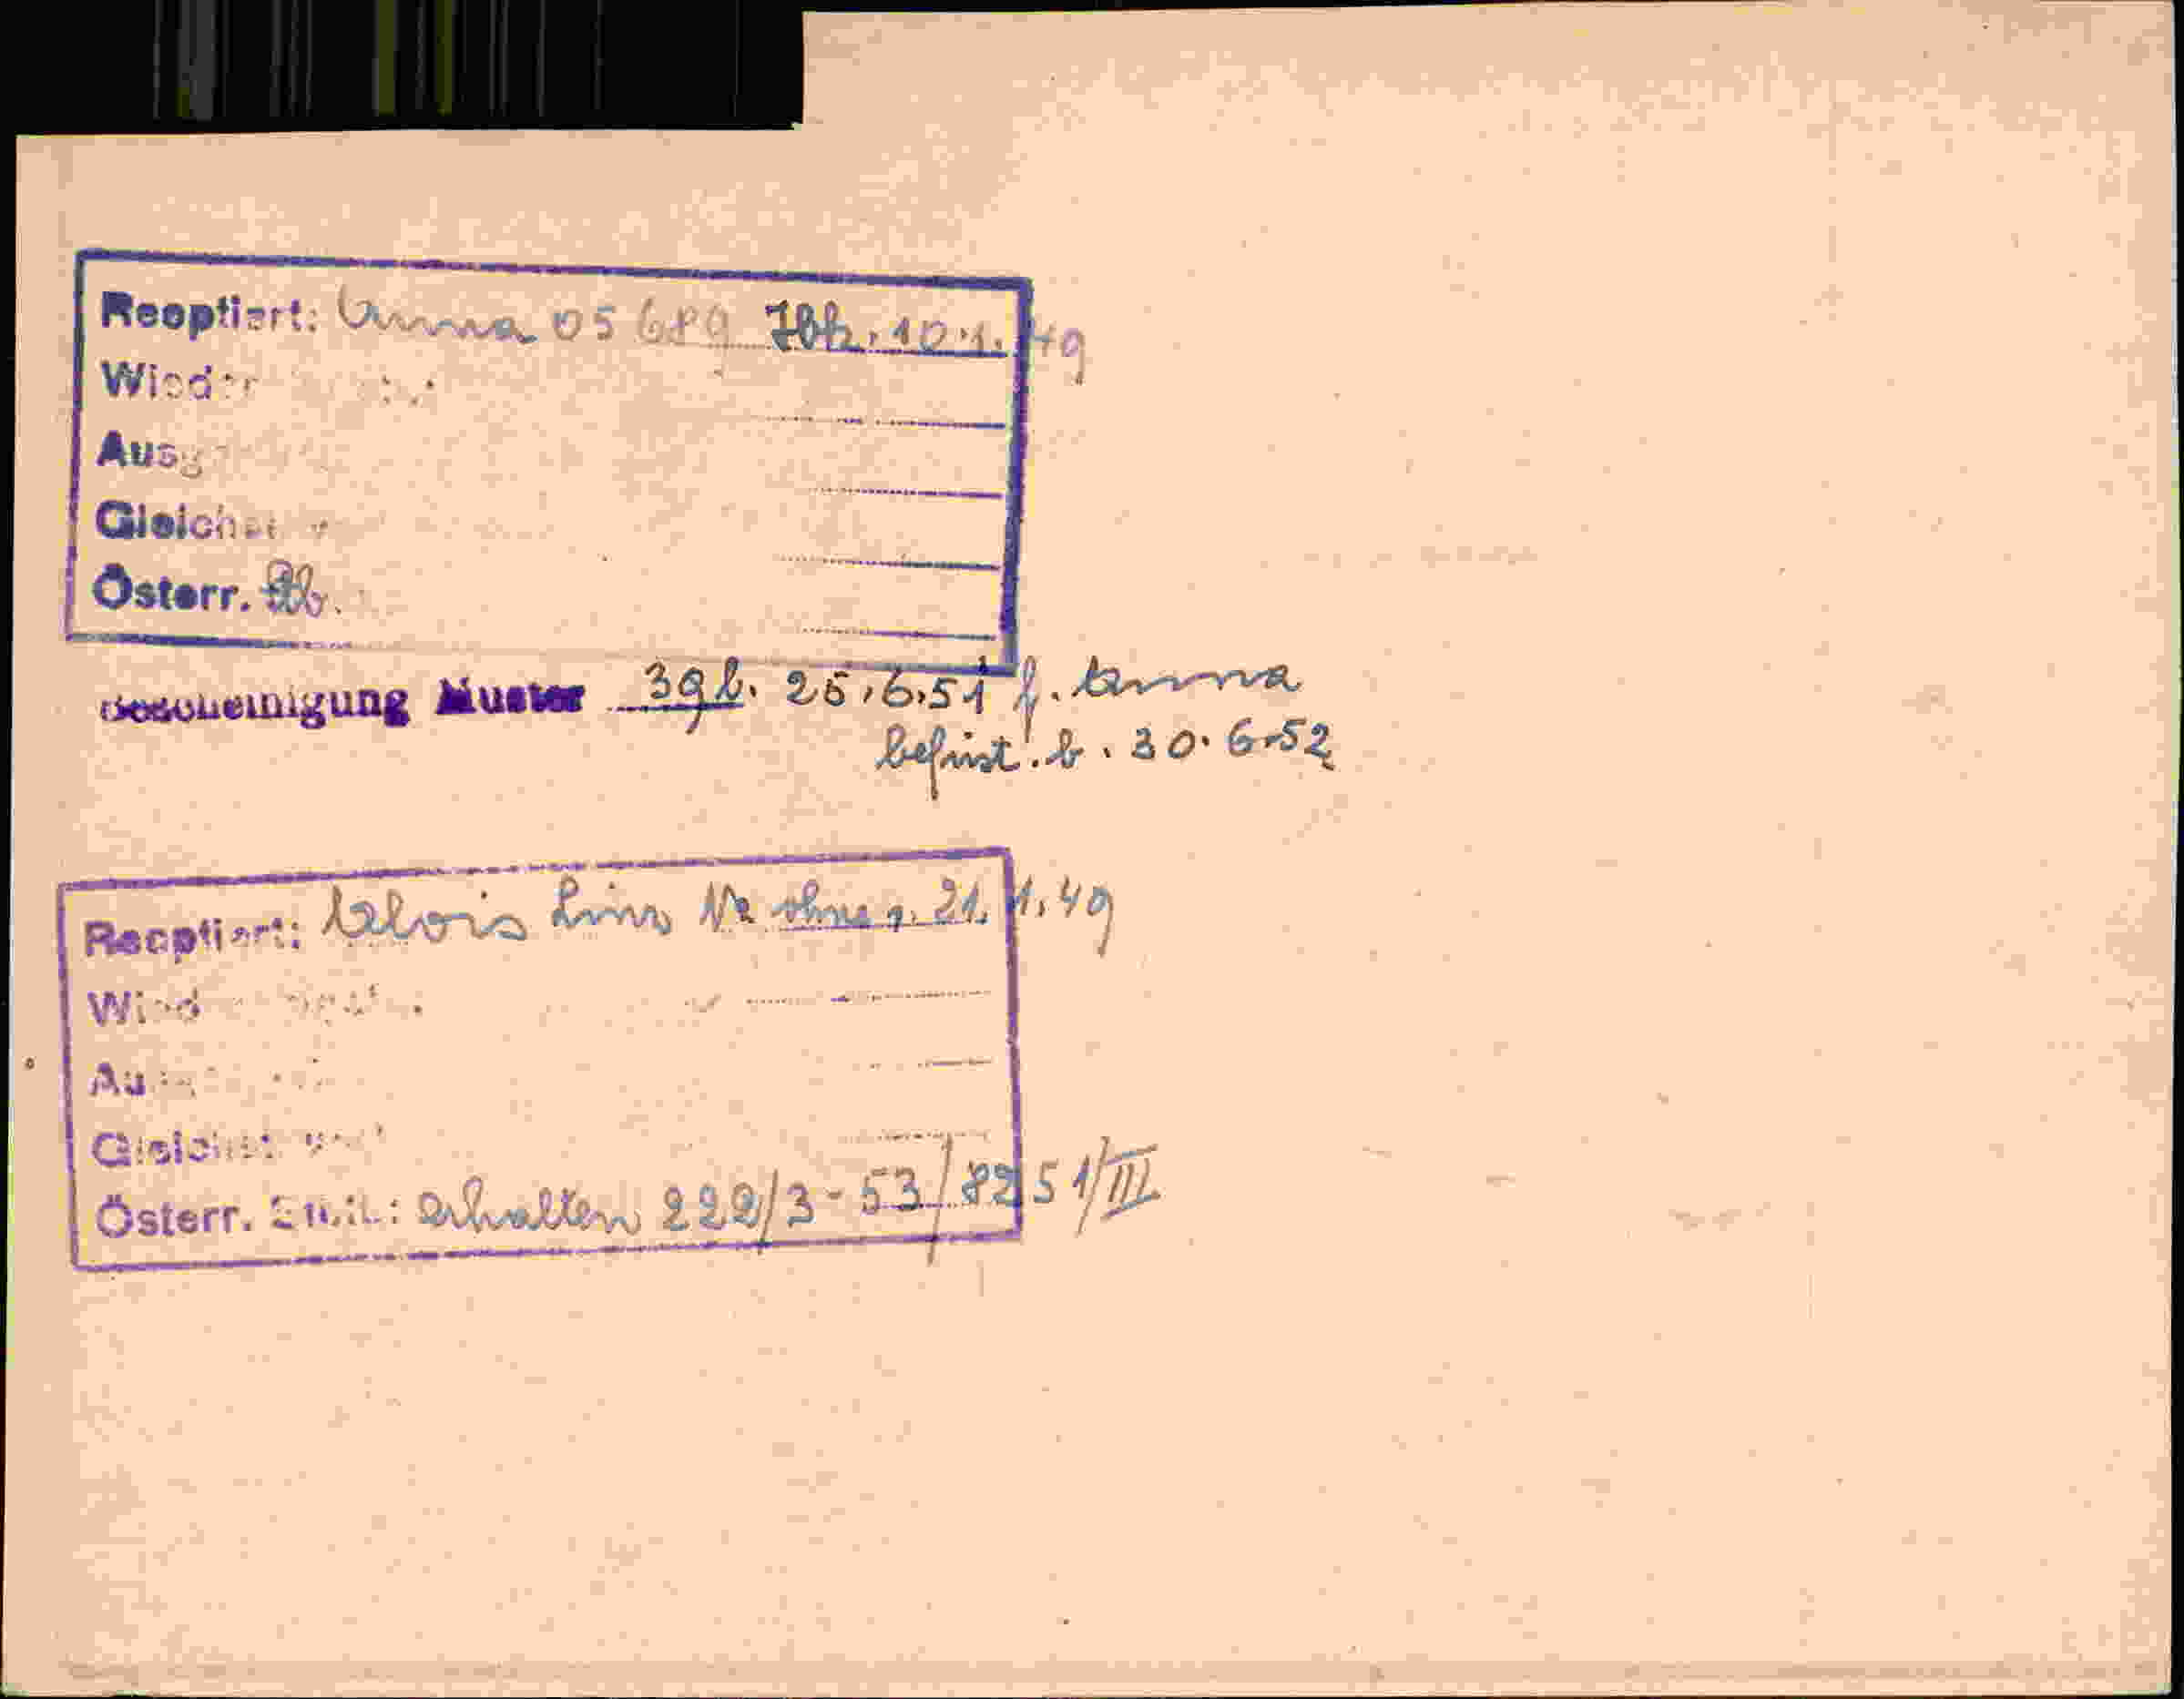 Reoptiert: Anna 05689 Jbk. 10.1.49
Wieder
Ausg
Gleichst
Österr. Stb.
Bescheinigung Muster 39 b. 25.6.51 f. Anna
befrist. b. 30.6.52
Reoptiert: Alois Linz Nr ohne v. 21.1.49
Wied
Au
Gleichst
Österr. Stb.: erhalten 222/3-53/8251/III